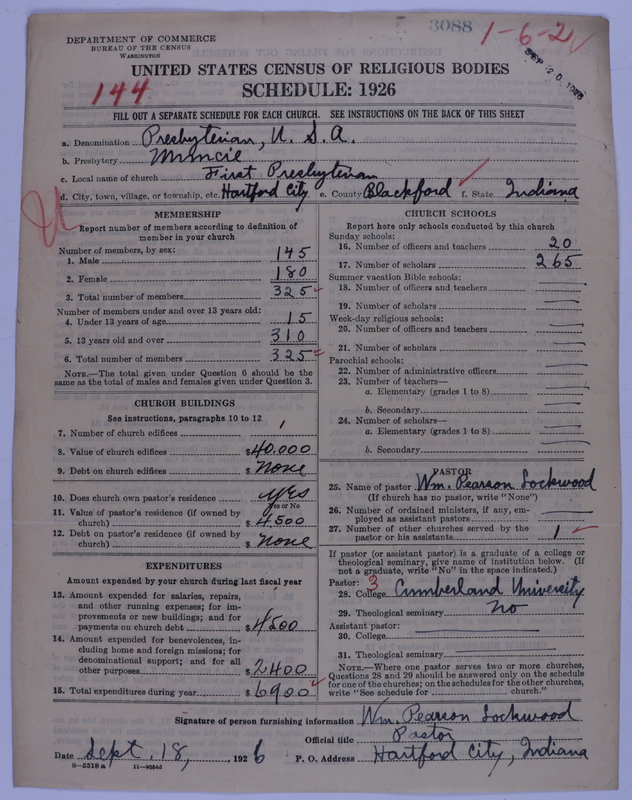 DEPARTMENT OF COMMERCE
BUREAU OF THE CENSUS
WASHINGTON
3088
1-6-2
SEP 20 1926
UNITED STATES CENSUS OF RELIGIOUS BODIES
144
SCHEDULE: 1926
FILL OUT A SEPARATE SCHEDULE FOR EACH CHURCH. SEE INSTRUCTIONS ON THE BACK OF THIS SHEET
a. Denomination Presbyterian, U. S. A.
b. Presbytery Muncie
c. Local name of church First Presbyterian
d. City, town, village, or township, etc. Hartford City e. County Blackford f. State Indiana
MEMBERSHIP
Report number of members according to definition of
member in your church
Number of members, by sex:
1. Male 145
2. Female 180
3. Total number of members 325
Number of members under and over 13 years old:
4. Under 13 years of age 15
5. 13 years old and over 310
6. Total number of members 325
NOTE.—The total given under Question 6 should be
same as the total of males and females given under Question 3.
CHURCH BUILDINGS
See instructions, paragraphs 10 to 12
7. Number of church edifices 1
8. Value of church edifices $40.000
9. Debt on church edifices $ None
10. Does church own pastor's residence yes
Yes or No
11. Value of pastor's residence (if owned by
church) $ 4500
12. Debt on pastor's residence (if owned by
church) $ None
EXPENDITURES
Amount expended by your church during last fiscal year
13. Amount expended for salaries, repairs,
and other running expenses; for im-
provements or new buildings; and for
payments on church debt $4500
14. Amount expended for benevolences, in-
cluding home and foreign missions; for
denominational support; and for all
other purposes $2400
15. Total expenditures during year $6900
CHURCH SCHOOLS
Report here only schools conducted by this church
Sunday schools:
16. Number of officers and teachers 20
17. Number of scholars 265
Summer vacation Bible schools:
18. Number of officers and teachers
19. Number of scholars
Week-day religious schools:
20. Number of officers and teachers
21. Number of scholars
Parochial schools:
22. Number of administrative officers
23. Number of teachers—
a. Elementary (grades 1 to 8)
b. Secondary
24. Number of scholars—
a. Elementary (grades 1 to 8)
b. Secondary
PASTOR
25. Name of pastor Wm. Pearson Lockwood
(If church has no pastor, write "None")
26. Number of ordained ministers, if any, em-
ployed as assistant pastors
27. Number of other churches served by the
pastor or his assistants 1
If pastor (or assistant pastor) is a graduate of a college or
theological seminary, give name of institution below. (If
not a graduate, write "No" in the space indicated.)
Pastor: 3
28. College Cumberland University
29. Theological seminary no
Assistant pastor:
30. College
31. Theological seminary
NOTE.—Where one pastor serves two or more churches,
Questions 28 and 29 should be answered only on the schedule
for one of the churches; on the schedules for the other churches,
write "See schedule for church."
Signature of person furnishing information Wm. Pearson Lockwood
Official title Pastor
Date Sept. 18, 1926 P. O. Address Hartford City, Indiana
8-5518 a